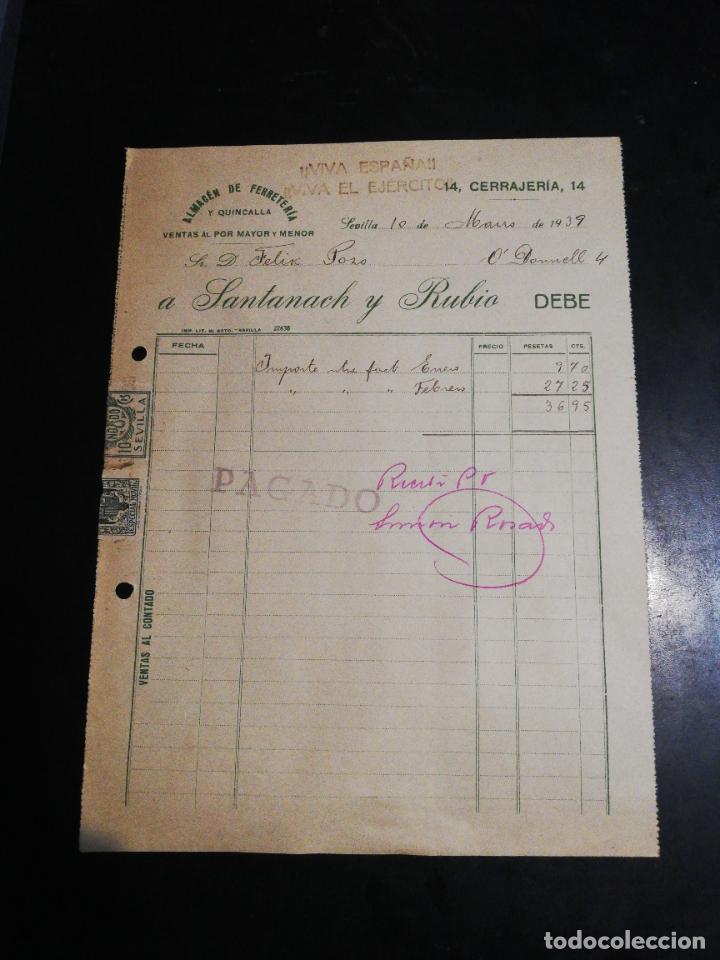 ¡¡VIVA ESPAÑA!!
¡¡VIVA EL EJÉRCITO!!
ALMACÉN DE FERRETERÍA
Y QUINCALLA
VENTAS AL POR MAYOR Y MENOR
14, CERRAJERÍA, 14
Sevilla 10 de Marzo de 1939
Sr. D. Felix Pozo O'Donnell 4
a Santanach y Rubio DEBE
IMP. LIT. M. SOTO.-SEVILLA 22638
FECHA PRECIO PESETAS CTS.
Importe n/ fact Enero 9 70
" " " Febrero 27 25
36 95
PAGADO
Recibí P.
Rosado
10
SEVILLA
ESPECIAL MOVIL
VENTAS AL CONTADO
todocoleccion
todocoleccion.net